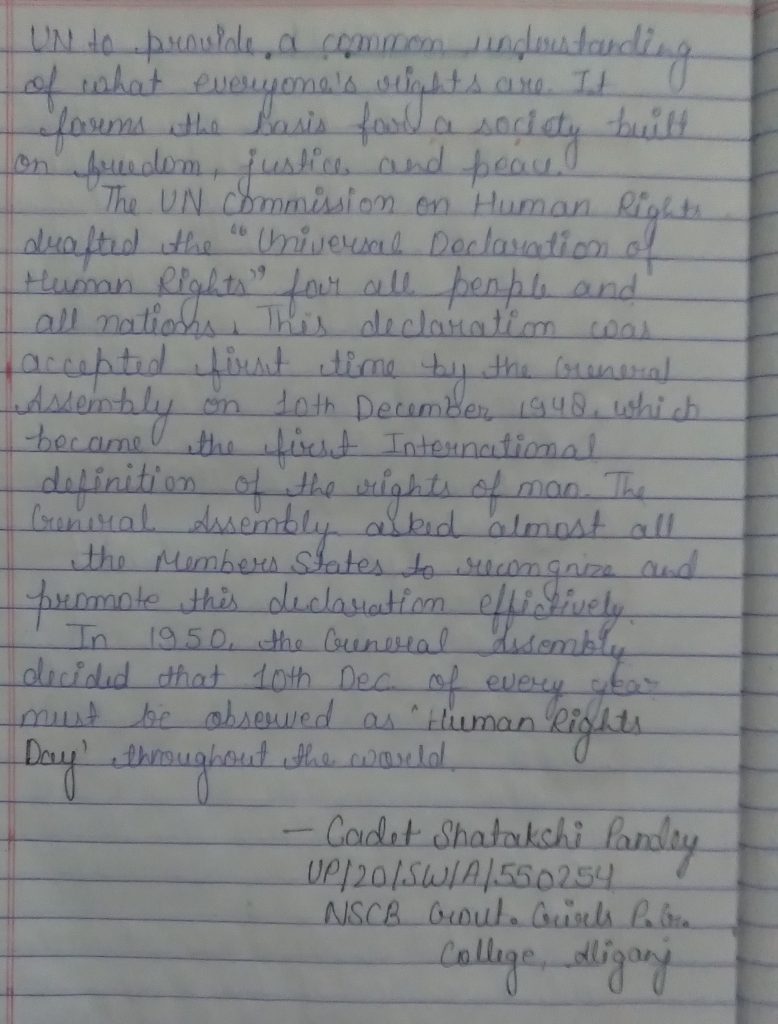 UN to provide a common understanding
of what everyone's rights are. It
forms the basis for a society built
on freedom, justice and peace.
The UN Commission on Human Rights
drafted the "Universal Declaration of
Human Rights" for all people and
all nations. This declaration was
accepted first time by the General
Assembly on 10th December 1948, which
became the first International
definition of the rights of man. The
General Assembly asked almost all
the Members States to recongnize and
promote this declaration effictively.
In 1950, the General Assembly
decided that 10th Dec. of every year
must be observed as 'Human Rights
Day' throughout the world.
— Cadet Shatakshi Pandey
UP/20/SW/A/550254
NSCB Govt. Girls P.G.
College, Aliganj